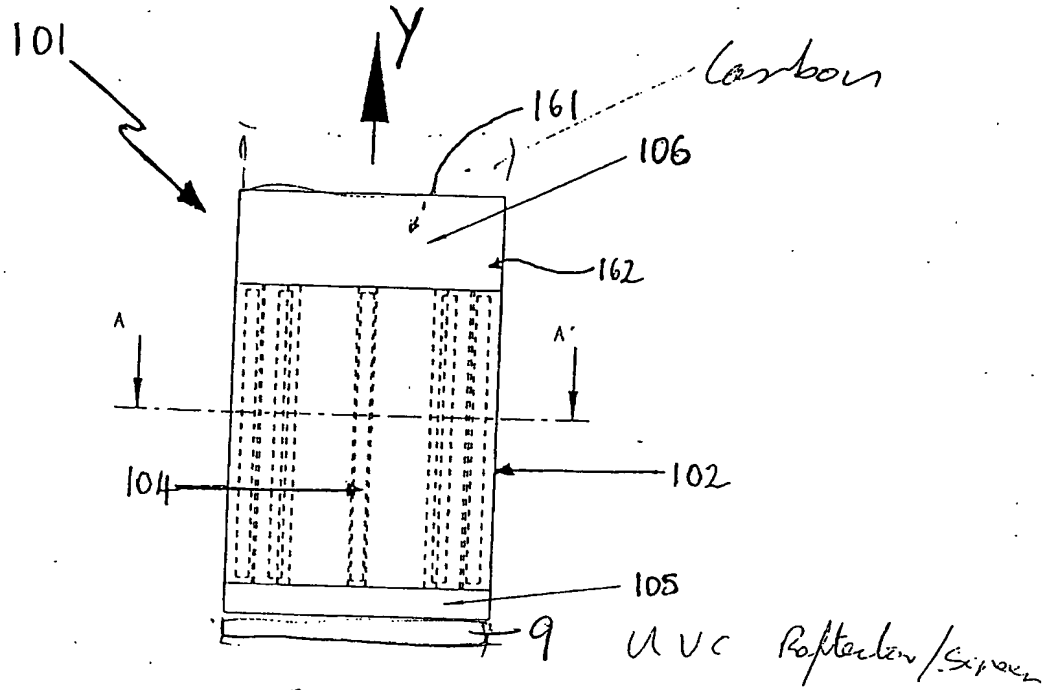 101
Y
Carbon
161
106
162
A
A'
104
102
105
9
UVC Reflector/Screen